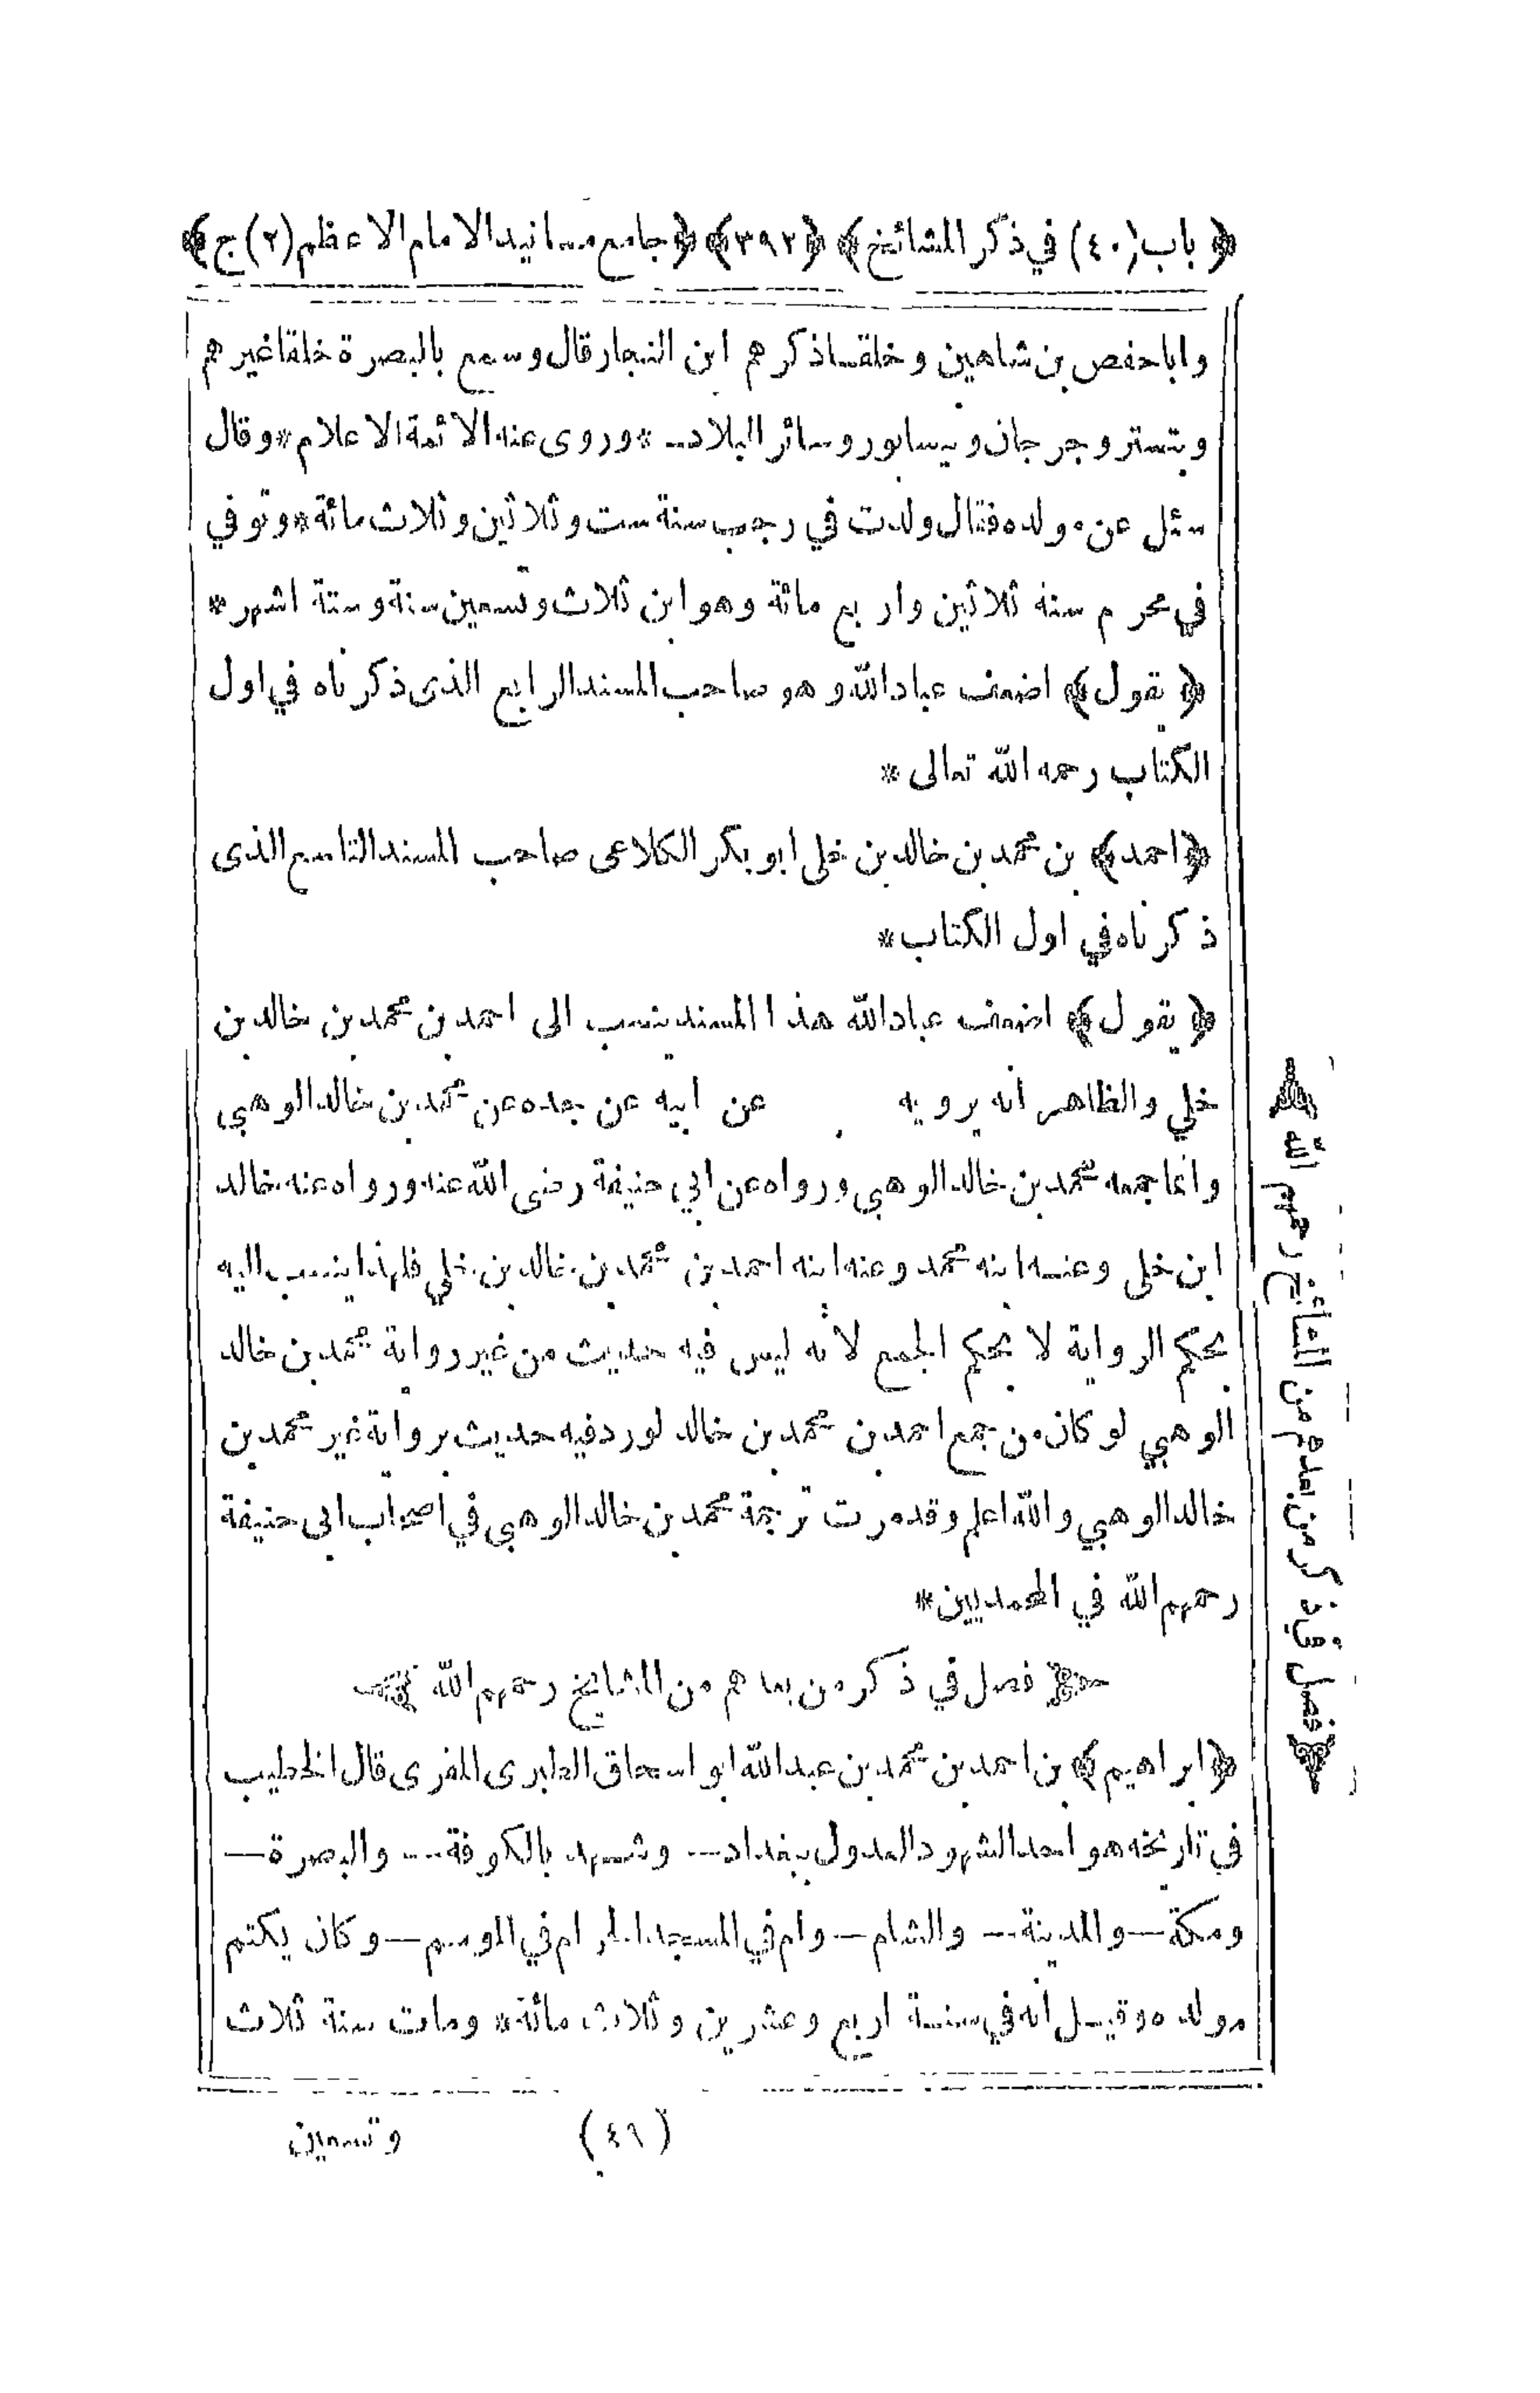 ﴿ باب (٤٠) في ذكر المشائخ ﴾ ﴿ ٣٩٣ ﴾ ﴿ جامع مسانيد الامام الاعظم (٢) ج ﴾
وابا حفص بن شاهين وخلقا ذكرهم ابن النجار قال وسمع بالبصرة خلقا غيرهم
وبتستر وجرجان ونيسابور وسائر البلاد * وروى عنه الائمة الاعلام * وقال
سئل عن مولده فقال ولدت في رجب سنة ست وثلاثين وثلاث مائة * وتوفي
في محرم سنة ثلاثين واربع مائة وهو ابن ثلاث وتسعين سنة وستة اشهر *
﴿ يقول ﴾ اضعف عباد الله وهو صاحب المسند الرابع الذى ذكرناه في اول
الكتاب رحمه الله تعالى *
﴿ احمد ﴾ بن محمد بن خالد بن خلى ابو بكر الكلاعى صاحب المسند التاسع الذى
ذكرناه في اول الكتاب *
﴿ يقول ﴾ اضعف عباد الله هذا المسند ينسب الى احمد بن محمد بن خالد بن
خلي والظاهر انه يرويه عن ابيه عن جده عن محمد بن خالد الوهبي
وانما جمعه محمد بن خالد الوهبي ورواه عن ابي حنيفة رضى الله عنه ورواه عنه خالد
ابن خلى وعنه ابنه محمد وعنه ابنه احمد بن محمد بن خالد بن خلي فلهذا ينسب اليه
بحكم الرواية لا بحكم الجمع لأنه ليس فيه حديث من غير رواية محمد بن خالد
الوهبي لو كان من جمع احمد بن محمد بن خالد لورد فيه حديث برواية غير محمد بن
خالد الوهبي والله اعلم وقد مرت ترجمة محمد بن خالد الوهبي في اصحاب ابى حنيفة
رحمهم الله في المحمديين *
فصل في ذكر من بعدهم من المشايخ رحمهم الله
﴿ ابراهيم ﴾ بن احمد بن محمد بن عبد الله ابو اسحاق الطبرى المقرى قال الخطيب
في تاريخه هو احد الشهود العدول ببغداد — وشهد بالكوفة — والبصرة —
ومكة — والمدينة — والشام — وام في المسجد الحرام في الموسم — وكان يكتم
مولده وقيل انه في سنة اربع وعشرين وثلاث مائة * ومات سنة ثلاث
(٤٩)
وتسعين
﴿ فصل في ذكر من بعدهم من المشائخ رحمهم الله ﴾